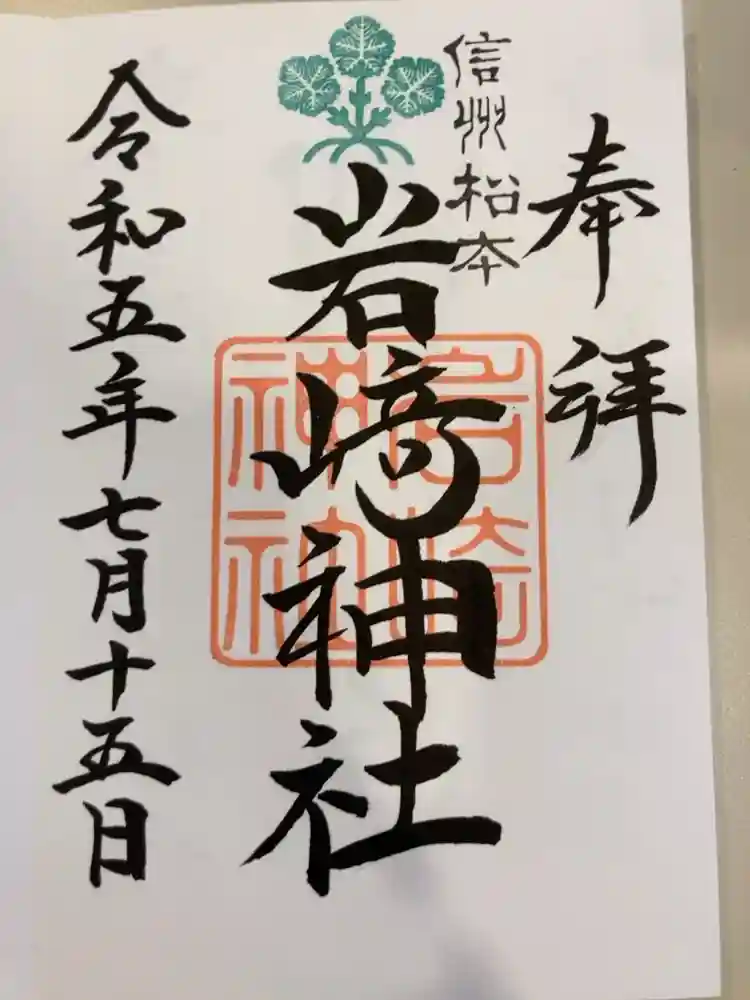 奉拝
信州松本
岩﨑神社
岩崎神社
令和五年七月十五日